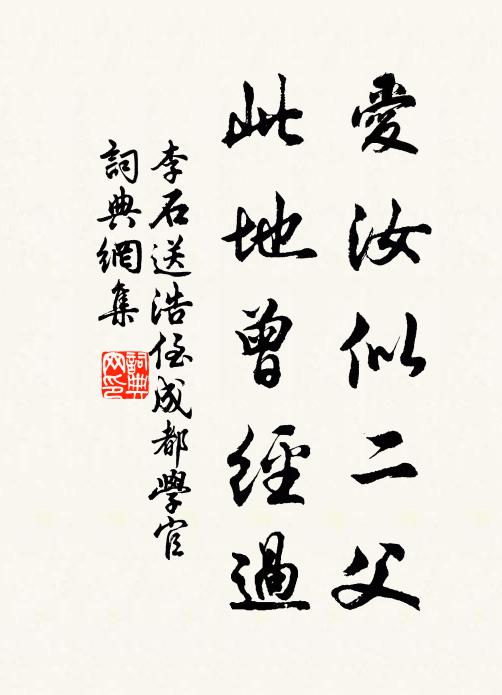 愛汝似二父
此地曾經過
李石送浩侄成都學官
詞典網集
詞典网印